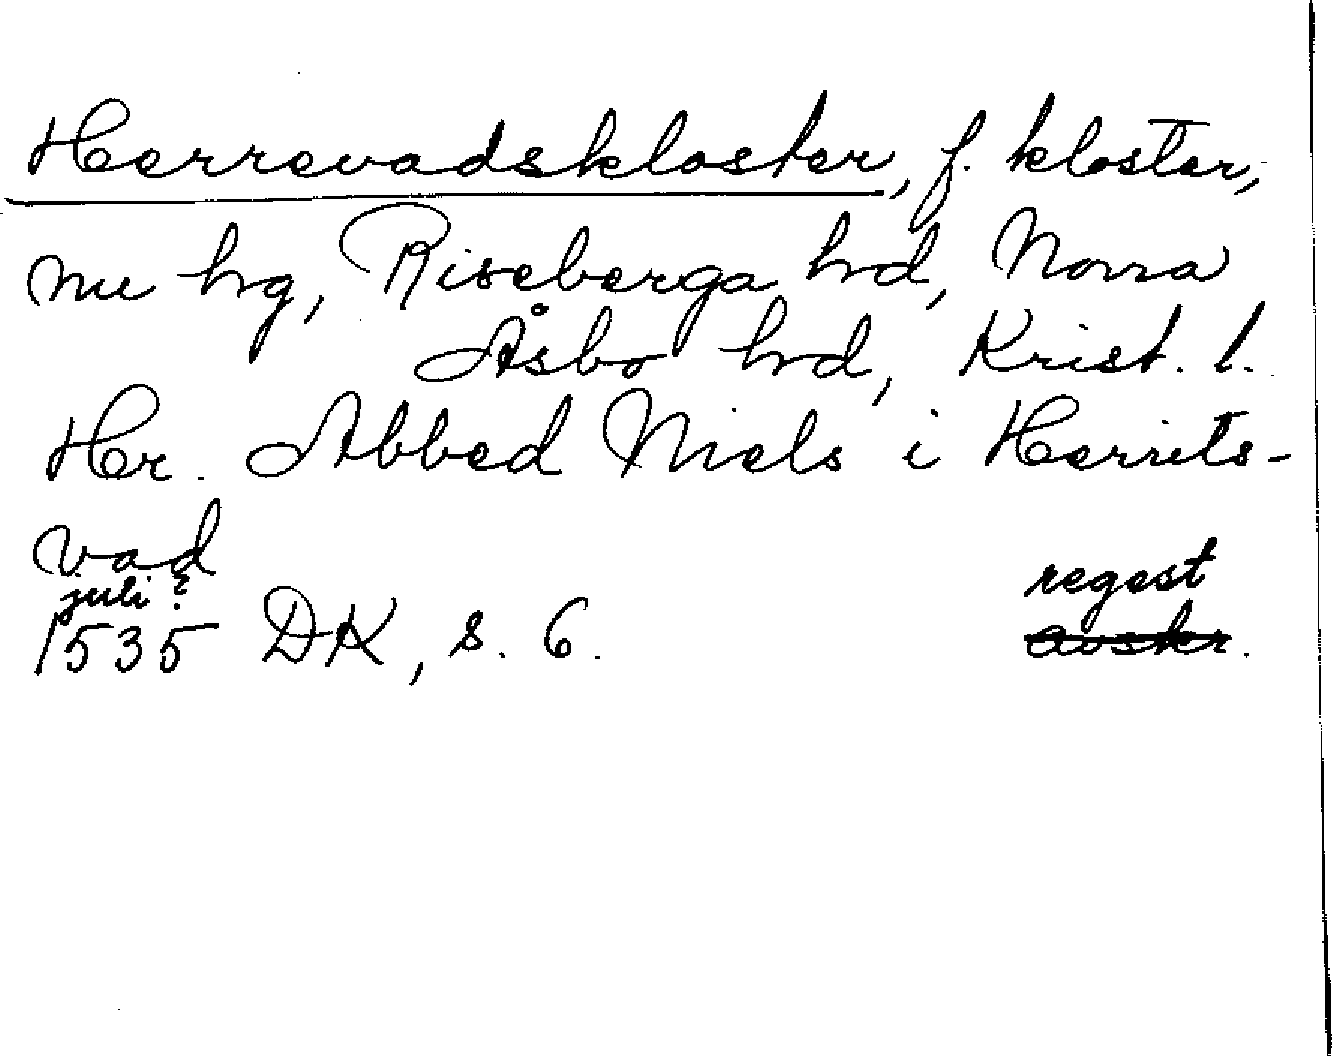 Herrevadskloster, f. kloster,
nu hg, Riseberga hd, Norra
Åsbo hd, Krist. l.
Hr. Abbed Niels i Herrits-
vad
juli?
regest
1535 DK, s. 6.
avskr.